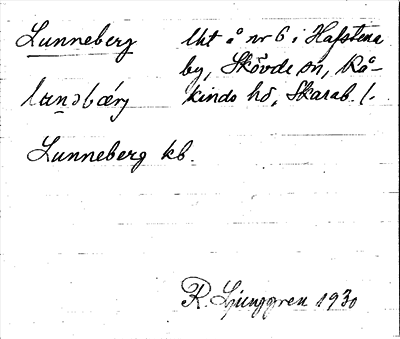 Lunneberg
lht å nr 6 i Hafstena
by, Skövde sn, Kå-
kinds hd, Skarab. l.
Lunneberg kb.
R. Ljunggren 1930